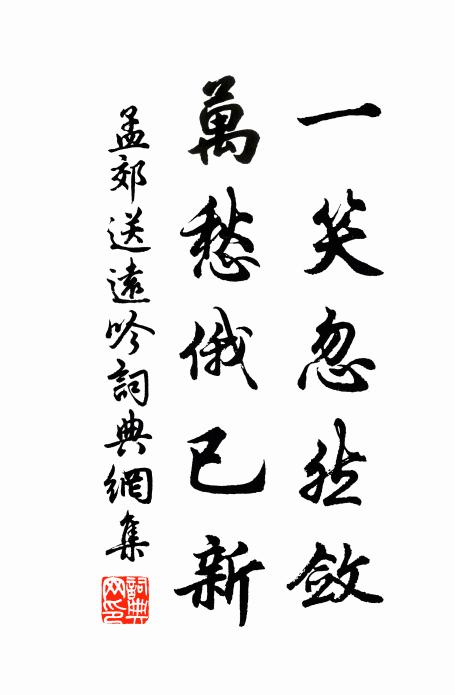 一笑忽然斂
萬愁俄已新
孟郊送遠吟詞典網集
詞典
网印